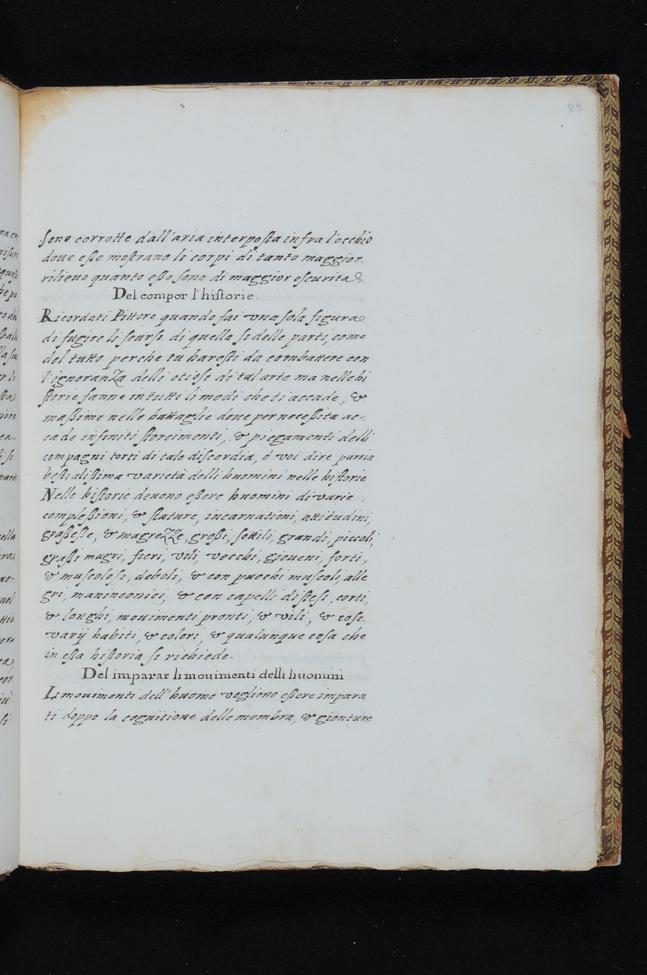 sono corrotte dall'aria interposta infra l'occhio
doue esse mostrano li corpi di tanto maggior
rilieuo quanto esse sono di maggior oscurita
Del compor l'historie.
Ricordati Pittore quando fai una sola figura
di fugire li scurti di quella si delle parti, come
del tutto perche tu haresti da combattere con
l'ignoranZa delli otiosi di tal arte ma nelle hi
storie fanne in tutti li modi che ti accade, &
massime nelle battaglie doue per necessita ac-
cade infiniti storcimenti, & piegamenti delli
compagni torti di tale discordia, ó voi dire
bestialissima varietà delli huomini nelle historie
Nelle historie deuono essere huomini di varie
complessioni, & stature, incarnationi, attitudini,
grassesse, & magreZZe, grossi, sottili, grandi, piccoli,
grassi magri, fieri, vili, vecchi, gioueni, forti,
& muscolosi, deboli, & con puochi muscoli, alle
gri, maninconici, & con capelli distesi, corti,
& longhi, mouimenti pronti, & vili, & cosi
varij habiti, & colori, & qualunque cosa che
in essa historia si richiede.
Del imparar li mouimenti delli huomini
Li mouimenti dell'huomo vogliono essere impara
ti doppo la cognitione delle membra, & gionture